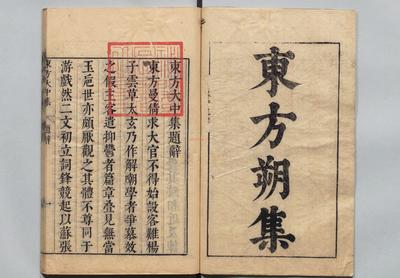 東方朔集
東方大中集題辭
東方曼倩求大官不得始設客難楊
子雲草太玄乃作解嘲學者爭慕效
之假主客遣抑鬱者篇章疊見無當
玉巵世亦頗厭觀之其體不尊同于
游戲然二文初立詞鋒競起以蘇張